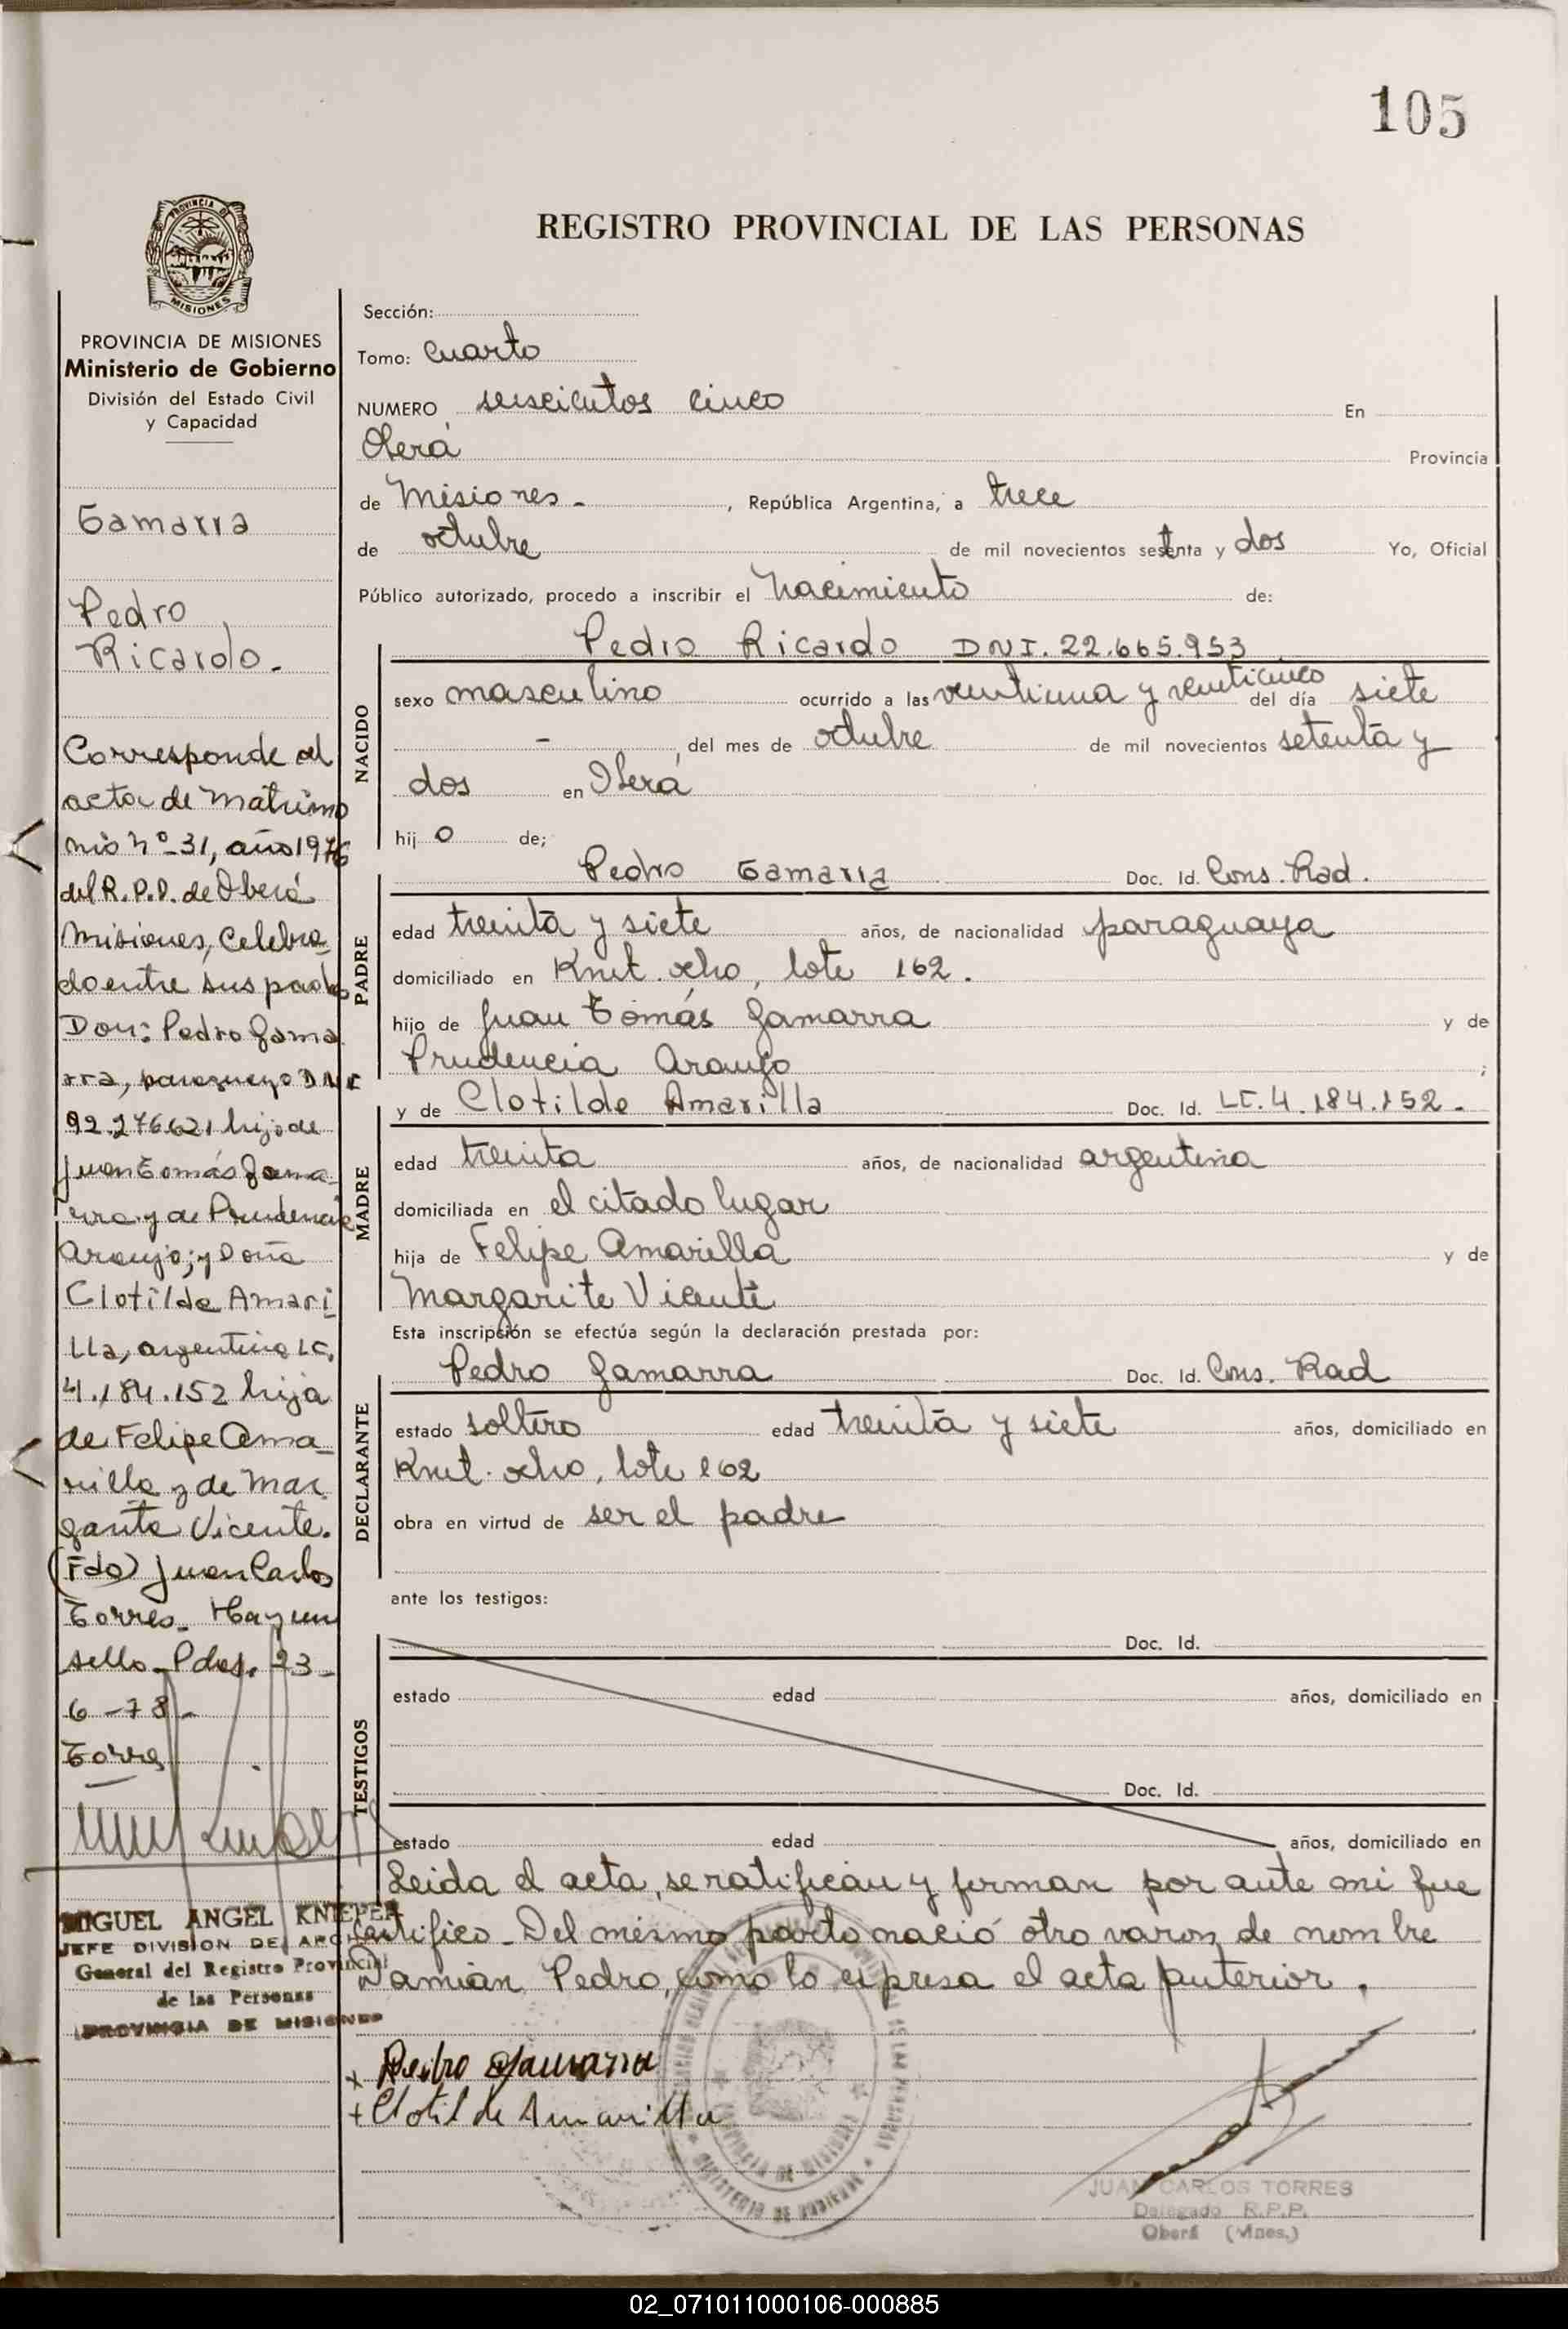 105
PROVINCIA DE
MISIONES
REGISTRO PROVINCIAL DE LAS PERSONAS
PROVINCIA DE MISIONES
Ministerio de Gobierno
División del Estado Civil
y Capacidad
Gamarra
Pedro
Ricardo.-
Corresponde al
acta de Matrimo
nio Nº 31, año 1976
del R.P.P. de Oberá
Misiones, Celebra
do entre sus padres
Don: Pedro Gama
rra, paraguayo DNI
92.276621 hijo de
Juan Tomás Gama
rra y de Prudencia
Araujo; y Doña
Clotilde Amari
lla, argentina LC.
4.184.152 hija
de Felipe Ama
rilla y de Mar
garita Vicente.
(Fdo) Juan Carlos
Torres. Hay un
sello. Pdas. 23-
6-78-
Torres
MIGUEL ANGEL KNIEPER
JEFE DIVISION DE ARCH
General del Registro Provincial
de las Personas
PROVINCIA DE MISIONES
Sección:
Tomo: Cuarto
NUMERO seiscientos cinco En
Oberá Provincia
de Misiones - , República Argentina, a trece
de octubre de mil novecientos setenta y dos Yo, Oficial
Público autorizado, procedo a inscribir el Nacimiento de:
Pedro Ricardo DNI. 22.665.953
NACIDO
sexo masculino ocurrido a las veintiuna y veinticinco del día siete
- , del mes de octubre de mil novecientos setenta y
dos en Oberá
hij o de;
Pedro Gamarra Doc. Id. Cons. Rad.
PADRE
edad treinta y siete años, de nacionalidad paraguaya
domiciliado en Kmt. ocho, lote 162.
hijo de Juan Tomás Gamarra y de
Prudencia Araujo ;
y de Clotilde Amarilla Doc. Id. LC. 4.184.152.
MADRE
edad treinta años, de nacionalidad argentina
domiciliada en el citado lugar
hija de Felipe Amarilla y de
Margarita Vicente
Esta inscripción se efectúa según la declaración prestada por:
Pedro Gamarra Doc. Id. Cons. Rad
DECLARANTE
estado soltero edad treinta y siete años, domiciliado en
Kmt. ocho, lote 162
obra en virtud de ser el padre
ante los testigos:
Doc. Id.
TESTIGOS
estado edad años, domiciliado en
Doc. Id.
estado edad años, domiciliado en
Leida el acta, se ratifican y firman por ante mi que
certifico - Del mismo parto nació otro varon de nombre
Damián Pedro, como lo expresa el acta anterior.
x Pedro Gamarra
+ Clotilde Amarilla
JUAN CARLOS TORRES
Delegado R.P.P.
Oberá (Mnes.)
02_071011000106-000885